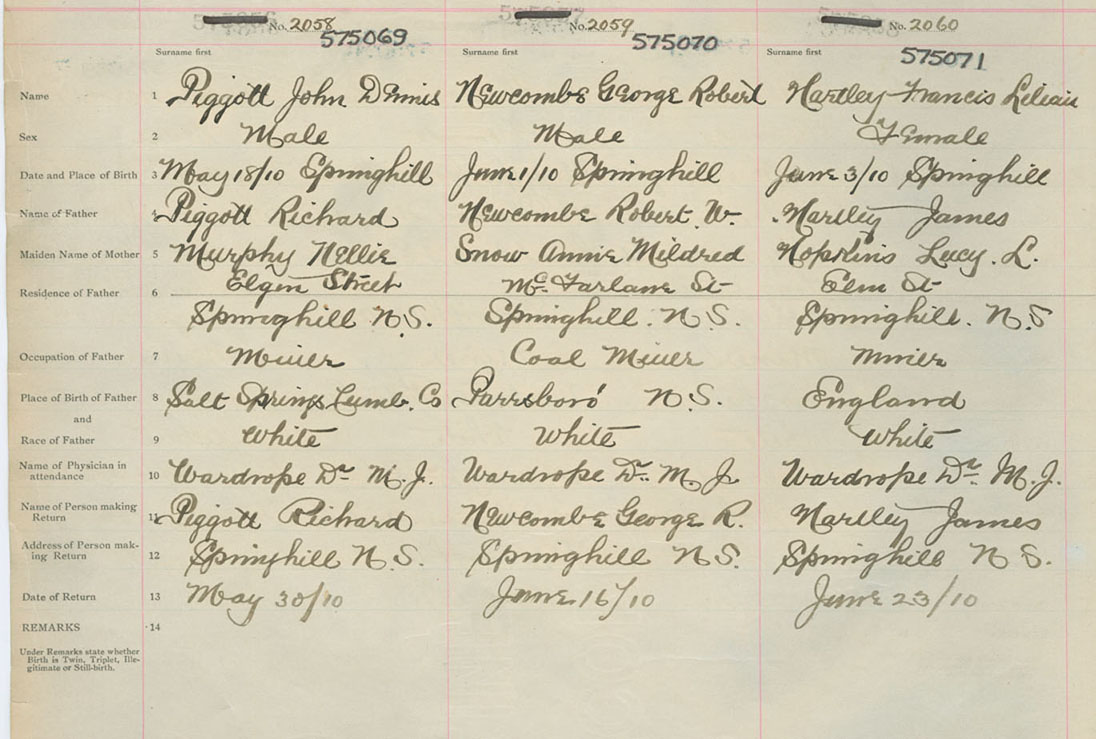 No. 2058 No. 2059 No. 2060
575069 575070 575071
Surname first Surname first Surname first
Name 1 Piggott John Dennis Newcombe George Robert Hartley Francis Lilian
Sex 2 Male Male Female
Date and Place of Birth 3 May 18/10 Springhill June 1/10 Springhill June 3/10 Springhill
Name of Father 4 Piggott Richard Newcombe Robert. W. Hartley James
Maiden Name of Mother 5 Murphy Nellie Snow Annie Mildred Hopkins Lucy. L.
Elgin Street Mc. Farlane St Elm St
Residence of Father 6
Springhill N.S. Springhill. N.S. Springhill. N.S
Occupation of Father 7 Miner Coal Miner Miner
Place of Birth of Father 8 Salt Springs Cumb. Co Parrsboro' N.S. England
and
Race of Father 9 White White White
Name of Physician in
attendance 10 Wardrope Dr M.J. Wardrope Dr. M J. Wardrope Dr M.J.
Name of Person making
Return 11 Piggott Richard Newcombe George R. Hartley James
Address of Person mak-
ing Return 12 Springhill N.S. Springhill N.S. Springhill N S.
Date of Return 13 May 30/10 June 16/10 June 23/10
REMARKS 14
Under Remarks state whether
Birth is Twin, Triplet, Ille-
gitimate or Still-birth.